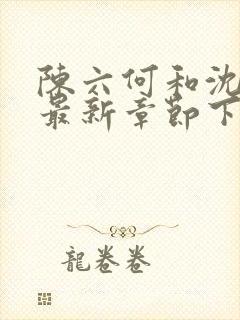 陳六何和沈
最新章節下
龍卷卷